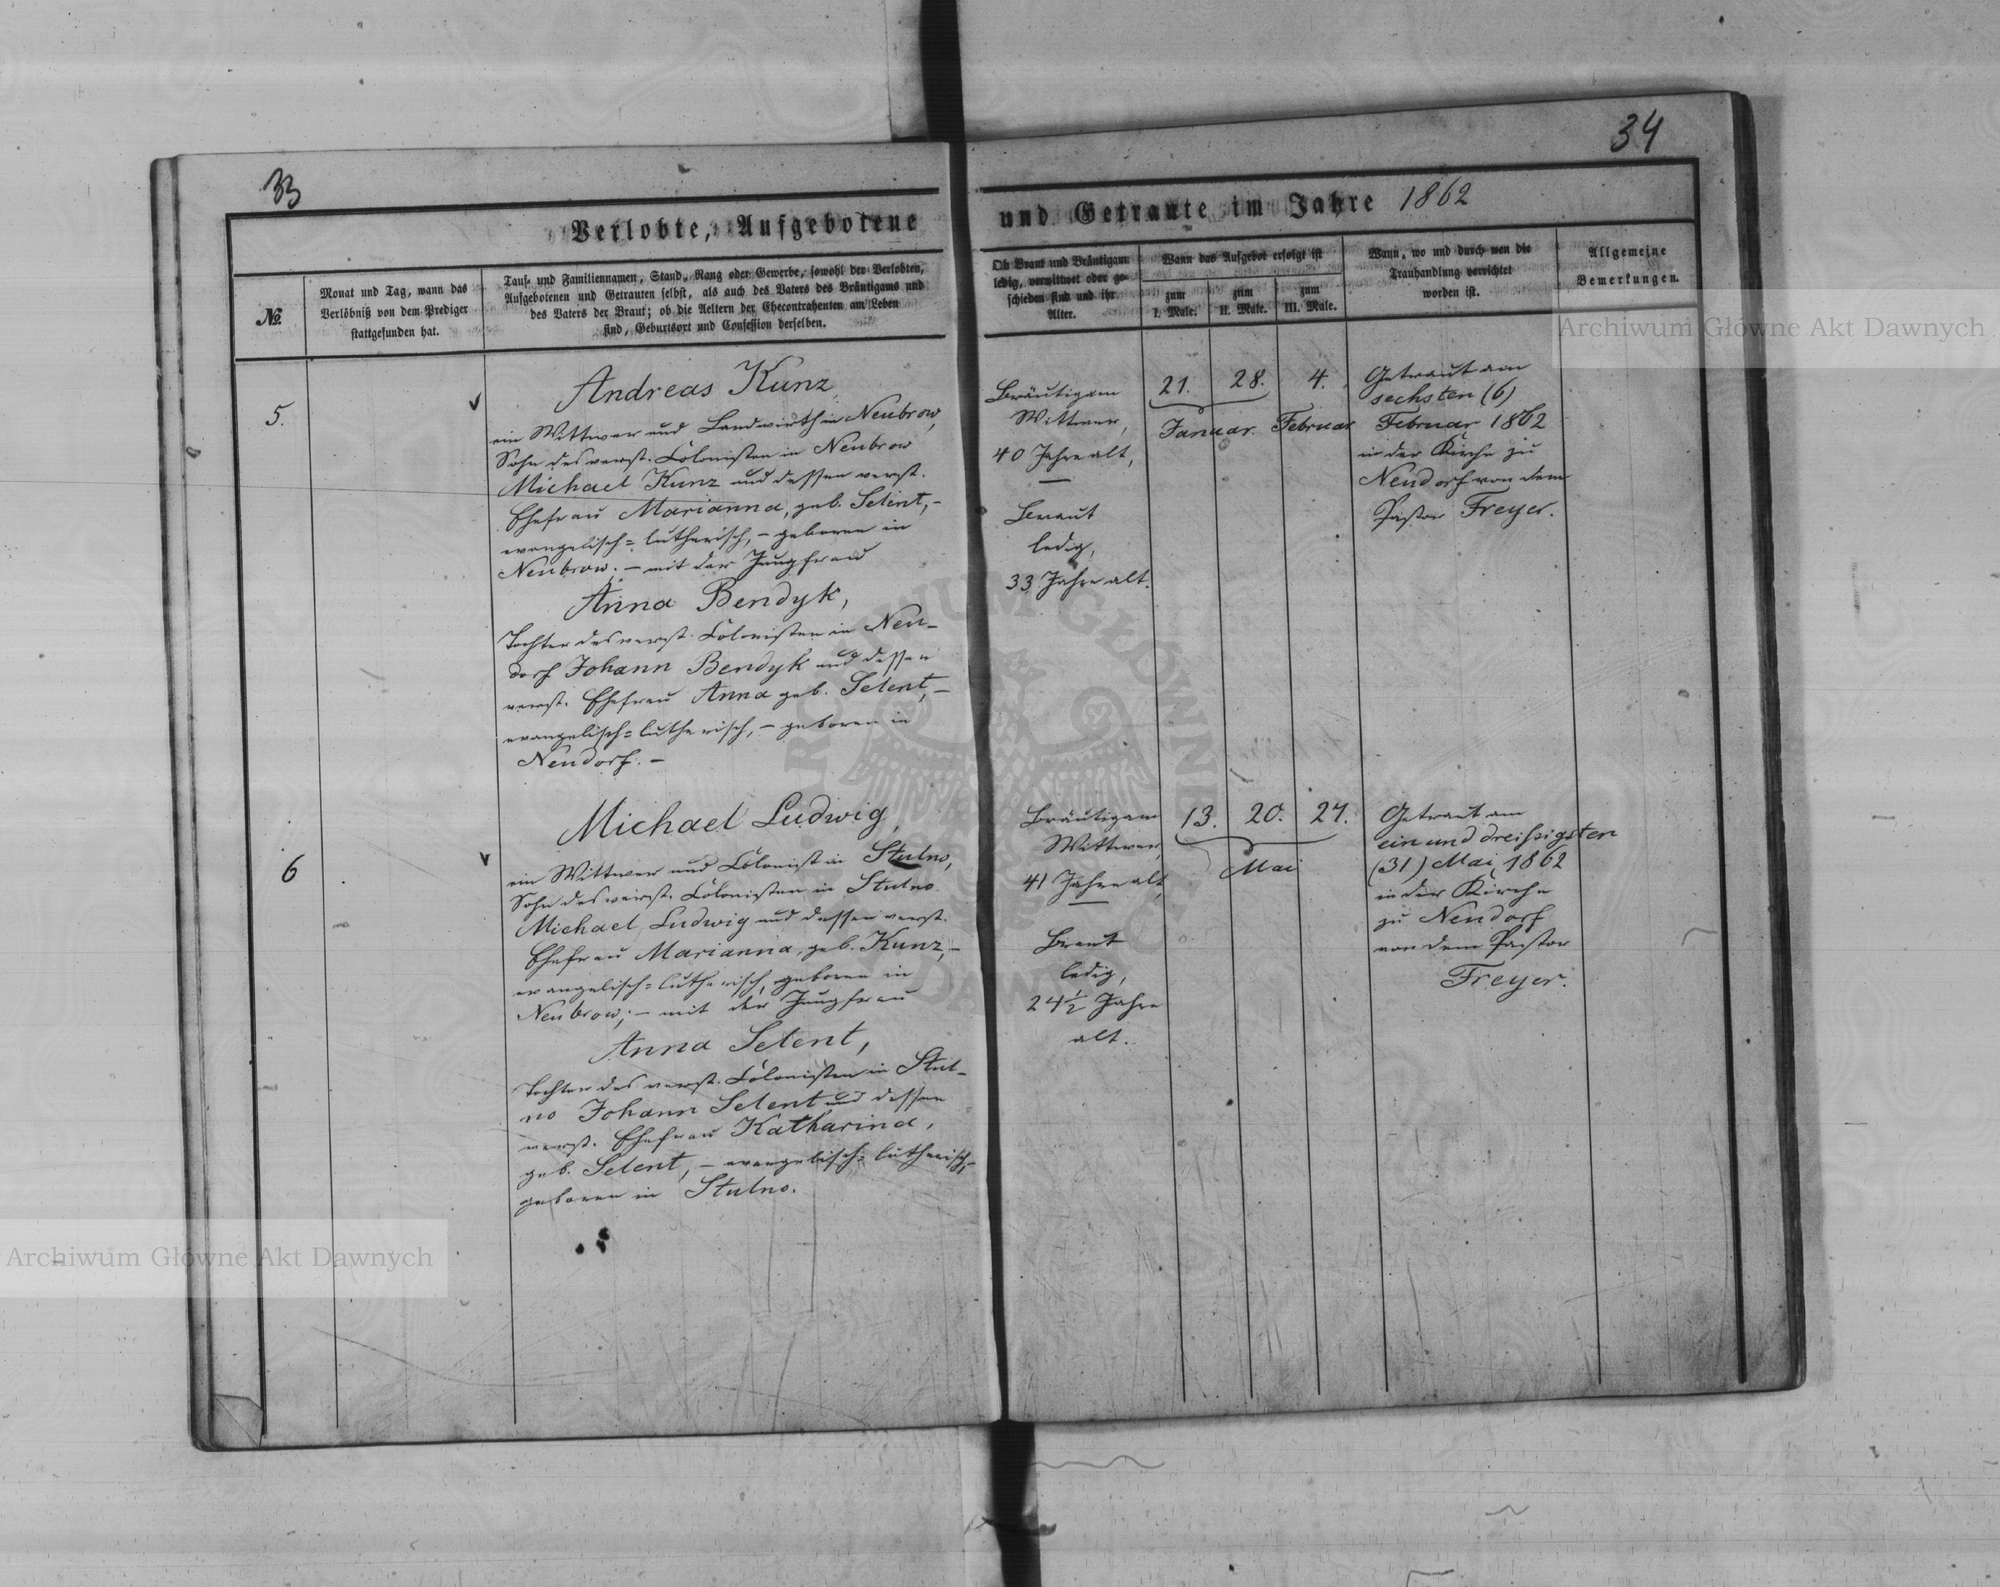 33
34
Verlobte, Aufgebotene
und Getraute im Jahre 1862
№
Monat und Tag, wann das
Verlöbniß von dem Prediger
stattgefunden hat.
Tauf- und Familiennamen, Stand, Rang oder Gewerbe, sowohl der Verlobten,
Aufgebotenen und Getrauten selbst, als auch des Vaters des Bräutigams und
des Vaters der Braut; ob die Aeltern der Ehecontrahenten am Leben
sind, Geburtsort und Confession derselben.
Ob Braut und Bräutigam
ledig, verwittwet oder ge-
schieden sind und ihr
Alter.
Wann das Aufgebot erfolgt ist
zum
I. Male.
zum
II. Male.
zum
III. Male.
Wann, wo und durch wen die
Trauhandlung verrichtet
worden ist.
Allgemeine
Bemerkungen.
5.
Andreas Kunz,
ein Wittwer und Landwirth in Neubrow,
Sohn des verst. Colonisten in Neubrow
Michael Kunz und dessen verst.
Ehefrau Marianna, geb. Selent, -
evangelisch=lutherisch, - geboren in
Neubrow. - mit der Jungfrau
Anna Bendyk,
Tochter des verst. Colonisten in Neu-
dorf Johann Bendyk und dessen
verst. Ehefrau Anna geb. Selent, -
evangelisch=lutherisch, - geboren in
Neudorf. -
Bräutigam
Wittwer,
40 Jahre alt,
Braut
ledig,
33 Jahre alt.
21. 28. 4.
Januar. Februar
Getraut am
sechsten (6)
Februar 1862
in der Kirche zu
Neudorf von dem
Pastor Freyer.
6
Michael Ludwig,
ein Wittwer und Colonist in Stulno,
Sohn des verst. Colonisten in Stulno
Michael Ludwig und dessen verst.
Ehefrau Marianna, geb. Kunz, -
evangelisch=lutherisch, geboren in
Neubrow; - mit der Jungfrau
Anna Selent,
Tochter des verst. Colonisten in Stul-
no Johann Selent und dessen
verst. Ehefrau Katharina,
geb. Selent, - evangelisch=lutherisch,
geboren in Stulno.
Bräutigam
Wittwer,
41 Jahre alt,
Braut
ledig,
24 ½ Jahre
alt.
13. 20. 27.
Mai
Getraut am
ein und dreißigsten
(31) Mai 1862
in der Kirche
zu Neudorf
von dem Pastor
Freyer.
Archiwum Główne Akt Dawnych
Archiwum Główne Akt Dawnych
ARCHIWUM GŁÓWNE AKT DAWNYCH